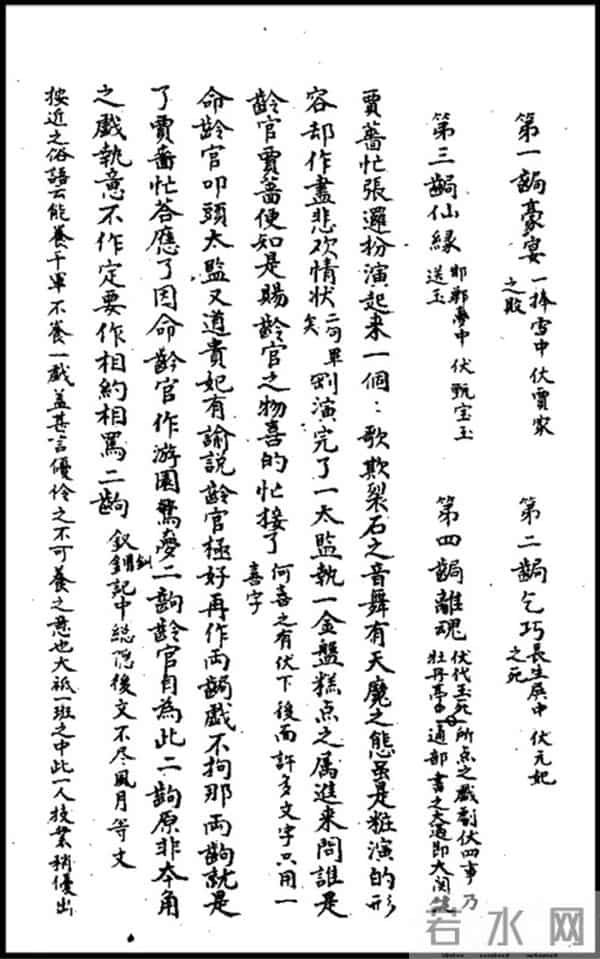 第一齣豪宴 一捧雪中伏賈家之敗 第二齣乞巧 長生殿中伏元妃之死
第三齣仙緣 邯鄲夢中伏甄宝玉送玉 第四齣離魂 伏代玉死牡丹亭中 所点之戲劇伏四事乃通部書之大過節大関鍵
賈薔忙張邏扮演起來一個:歌欺裂石之音舞有天魔之態虽是粧演的形
容却作盡悲欢情状 二句畢矣 剛演完了一太監執一金盤糕点之属進来問誰是
齡官賈薔便知是賜齡官之物喜的忙接了 何喜之有伏下後面許多文字只用一喜字
命齡官叩頭太監又道貴妃有諭説齡官極好再作両齣戲不拘那両齣就是
了賈薔忙答應了因命齡官作游園驚夢二齣齡官自為此二齣原非本角
之戲執意不作定要作相約相罵二齣 釵釧記中總隠後文不尽風月等文
按近之俗語云能養千軍不養一戲盖甚言優伶之不可養之意也大祗一班之中此一人技業稍優出
若水网